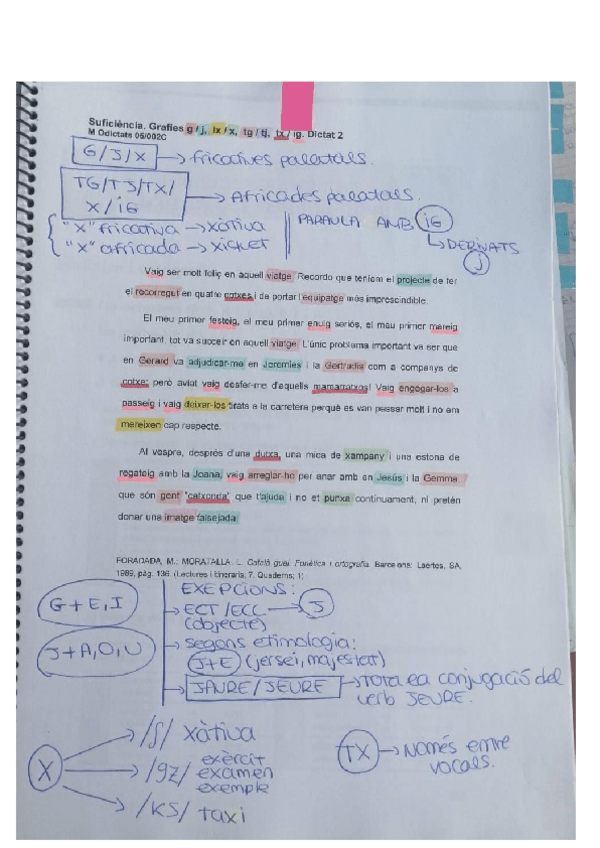 Suficiència. Grafies g / j, ix / x, tg / tj, tx / ig. Dictat 2
M Ddictats 05/002C
G/J/X → fricatives palatals.
TG/TJ/TX/
X/iG → Africades palatals.
"X" fricativa → xàtiva
"X" africada → xiquet
PARAULA AMB iG
↳ DERIVATS
j
Vaig ser molt feliç en aquell viatge. Recordo que teníem el projecte de fer
el recorregut en quatre cotxes i de portar l'equipatge més imprescindible.
El meu primer festeig, el meu primer enuig seriós, el meu primer mareig
important, tot va succeir en aquell viatge. L'únic problema important va ser que
en Gerard va adjudicar-me en Jeremies i la Gertrudis com a companys de
cotxe; però aviat vaig desfer-me d'aquells mamarratxos! Vaig engegar-los a
passeig i vaig deixar-los tirats a la carretera perquè es van passar molt i no em
mereixen cap respecte.
Al vespre, després d'una dutxa, una mica de xampany i una estona de
regateig amb la Joana, vaig arreglar-ho per anar amb en Jesús i la Gemma,
que són gent "catxonda" que t'ajuda i no et punxa contínuament, ni pretén
donar una imatge falsejada.
FORADADA, M.; MORATALLA, L. Català guai. Fonètica i ortografia. Barcelona: Laertes, SA,
1989, pàg. 136. (Lectures i Itineraris, 7. Quaderns; 1)
G+E,I
J+A,O,U
EXEPCIONS:
→ ECT/ECC → J
(objecte)
→ segons etimologia:
J+E (jersei, majestat)
→ JAURE/JEURE → TOTA ea conjugació del
verb JEURE.
X
→ /ʃ/ xàtiva
→ /gz/ exèrcit
examen
exemple
→ /KS/ taxi
TX → Només entre
vocals.